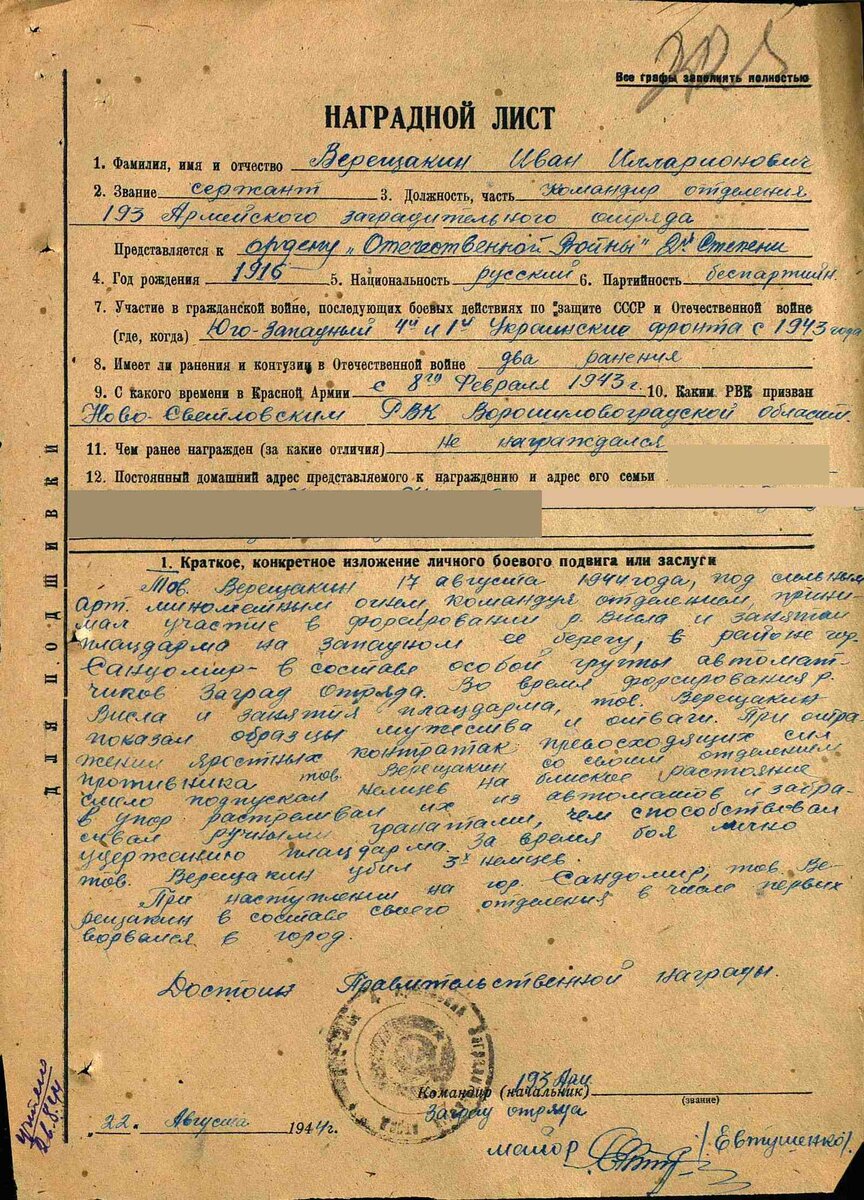 Все графы заполнять полностью
НАГРАДНОЙ ЛИСТ
1. Фамилия, имя и отчество Верещакин Иван Илларионович
2. Звание сержант 3. Должность, часть Командир отделения
193 Армейского заградительного отряда
Представляется к ордену „Отечественной Войны" 2й Степени
4. Год рождения 1916 5. Национальность русский 6. Партийность беспартийн.
7. Участие в гражданской войне, последующих боевых действиях по защите СССР и Отечественной войне
(где, когда) Юго-Западный 4й и 1й Украинские фронта с 1943 года
8. Имеет ли ранения и контузии в Отечественной войне два ранения
9. С какого времени в Красной Армии с 8го Февраля 1943г. 10. Каким РВК призван
Ново-Светловским РВК Ворошиловоградской области.
11. Чем ранее награжден (за какие отличия) не награждался
12. Постоянный домашний адрес представляемого к награждению и адрес его семьи
1. Краткое, конкретное изложение личного боевого подвига или заслуги
Тов. Верещакин 17 августа 1944 года, под сильным
арт. минометным огнем, командуя отделением, прини-
мал участие в форсировании р. Висла и занятии
плацдарма на западном ее берегу, в районе гор.
Сандомир - в составе особой группы автомат-
чиков Заград Отряда. Во время форсирования р.
Висла и занятия плацдарма, тов. Верещакин
показал образцы мужества и отваги. При отра-
жении яростных контратак превосходящих сил
противника тов. Верещакин со своим отделением
смело подпускал немцев на близкое растояние
в упор растреливал их из автоматов и забра-
сывал ручными гранатами, чем способствовал
удержанию плацдарма. За время боя лично
тов. Верещакин убил 3х немцев.
При наступлении на гор. Сандомир, тов. Ве-
рещакин в составе своего отделения в числе первых
ворвался в город.
Достоин Правительственной награды.
193 Арм
Командир (начальник)
(звание)
Заград отряда
22. Августа 1944 г.
майор /Евтушенко/.
ДЛЯ ПОДШИВКИ
учтено
26.8.44